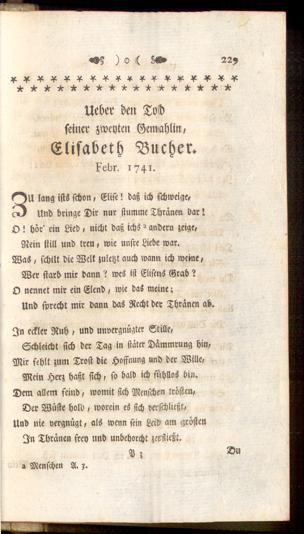 ) o (
229
Ueber den Tod
seiner zweyten Gemahlin,
Elisabeth Bucher.
Febr. 1741.
ZU lang ists schon, Elise! daß ich schweige,
Und bringe Dir nur stumme Thränen dar!
O! hör' ein Lied, nicht daß ichs a andern zeige,
Nein still und treu, wie unsre Liebe war.
Was, schilt die Welt zuletzt auch wann ich weine,
Wer starb mir dann? wes ist Elisens Grab?
O nennet mir ein Elend, wie das meine;
Und sprecht mir dann das Recht der Thränen ab.
In eckler Ruh, und unvergnügter Stille,
Schleicht sich der Tag in stäter Dämmrung hin,
Mir fehlt zum Trost die Hoffnung und der Wille,
Mein Herz haßt sich, so bald ich fühllos bin.
Dem allem feind, womit sich Menschen trösten,
Der Wüste hold, worein es sich verschließt,
Und nie vergnügt, als wenn sein Leid am grösten
In Thränen frey und unbehorcht zerfließt.
P 3
Du
a Menschen A. 3.